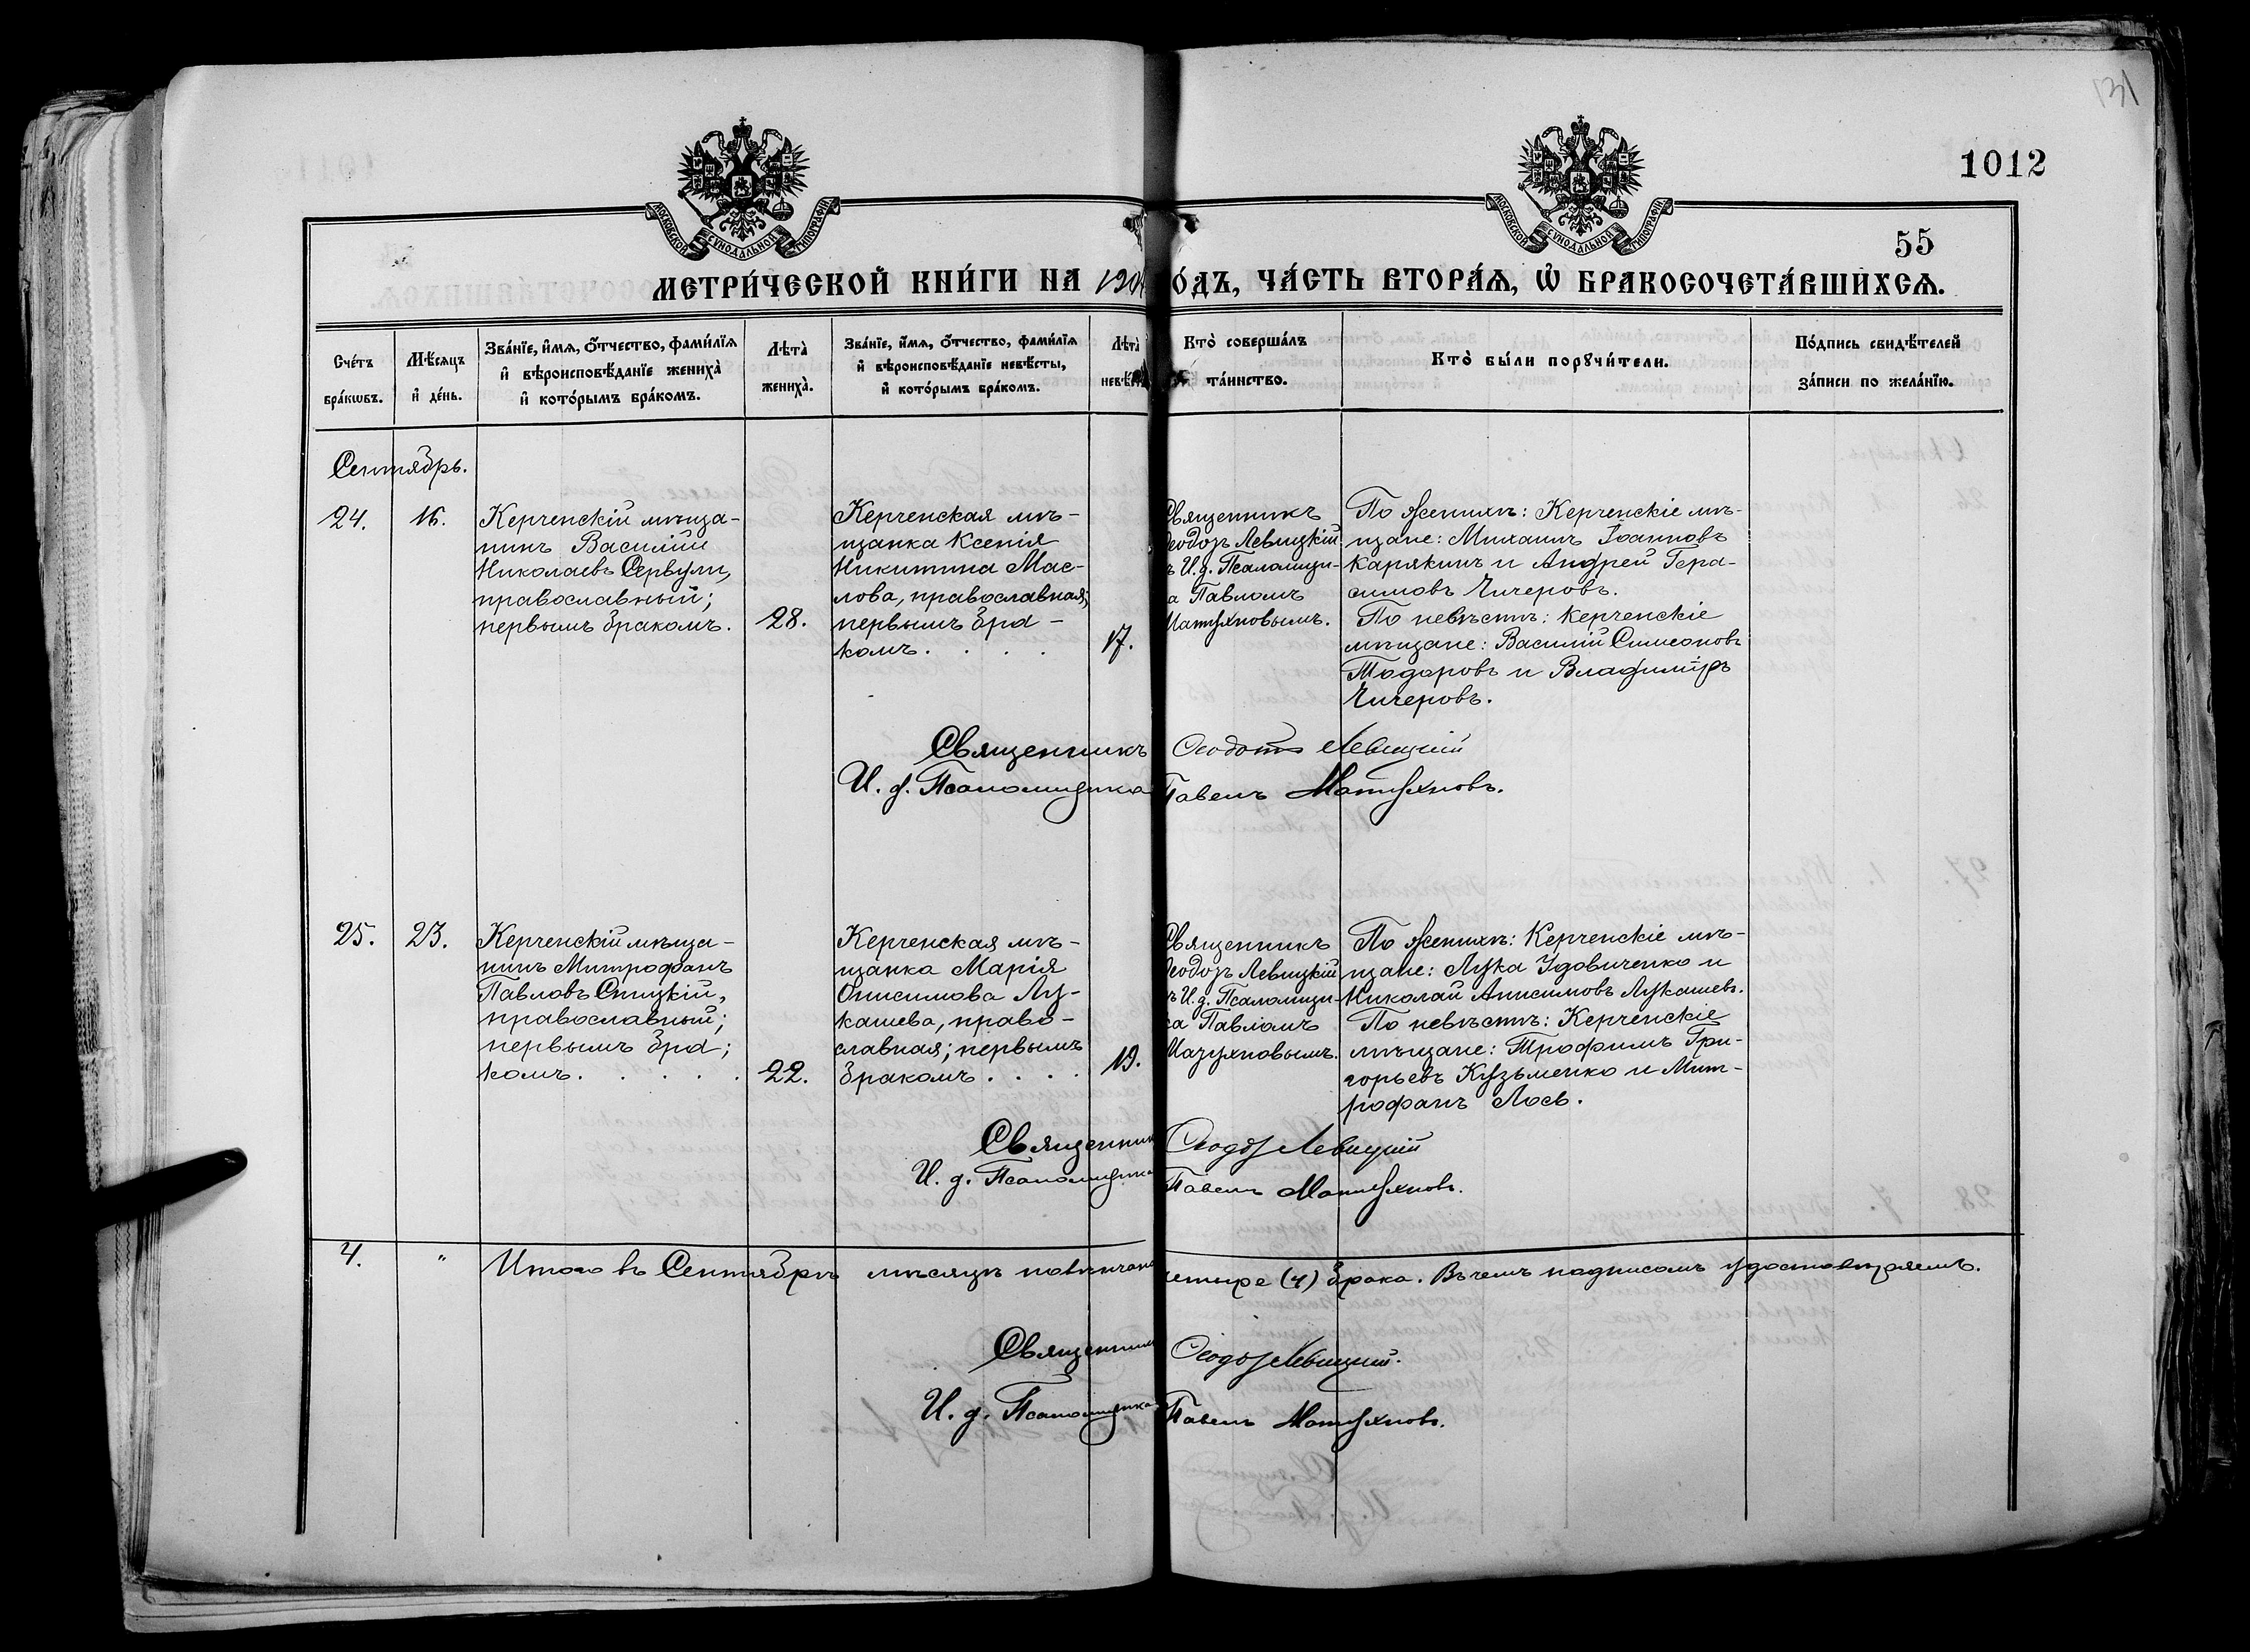 131
1012
55
МОСКОВСКОЙ СѴНОДАЛЬНОЙ ТИПОГРАФІИ
МОСКОВСКОЙ СѴНОДАЛЬНОЙ ТИПОГРАФІИ
МЕТРИ́ЧЕСКОЙ КНИ́ГИ НА 190 О́ДЪ, ЧА́СТЬ ВТОРА́Ѧ, Ѡ҆ БРАКОСОЧЕТА́ВШИХСѦ.
Сче́тъ
бра́кѡвъ.
Мѣ́сяцъ
и҆ де́нь.
Зва́нїе, и҆́мѧ, ѻ҆́тчество, фами́лїѧ
и҆ вѣроисповѣ́данїе жениха̀
и҆ кото́рымъ бра́комъ.
Лѣ́та̀
жениха̀.
Зва́нїе, и҆́мѧ, ѻ҆́тчество, фами́лїѧ
и҆ вѣроисповѣ́данїе невѣ́сты,
и҆ кото́рымъ бра́комъ.
Лѣ́та̀
невѣ́
Кто̀ соверша́лъ
та́инство.
Кто̀ бы́ли порꙋчи́тели.
По́дпись свидѣ́телей
за́писи по жела́нїю.
Сентябрь.
24.
16.
Керченскій мѣща-
нинъ Василій
Николаевъ Сервули,
православный;
первымъ бракомъ.
28.
Керченская мѣ-
щанка Ксенія
Никитина Мас-
лова, православная;
первымъ бра-
комъ . . . .
17.
Священникъ
Ѳеодоръ Левицкій
съ И. д. Псаломщи-
ка Павломъ
По женихѣ: Керченскіе мѣ-
щане: Михаилъ Іоанновъ
Карякинъ и Андрей Гера-
симовъ Чичеровъ.
По невѣстѣ: Керченскіе
мѣщане: Василій Симеоновъ
Тодоровъ и Владиміръ
Чичеровъ.
Священникъ Ѳеодоръ Левицкій
И. д. Псаломщика Павелъ
25.
23.
Керченскій мѣща-
нинъ Митрофанъ
Павловъ Спицкій,
православный;
первымъ бра;
комъ. . . . . .
22.
Керченская мѣ-
щанка Марія
Онисимова Лу-
кашева, право-
славная; первымъ
бракомъ . . . .
19.
Священникъ
Ѳеодоръ Левицкій
съ И. д. Псаломщи-
ка Павломъ
По женихѣ: Керченскіе мѣ-
щане: Лука Удовиченко и
Николай Анисимовъ Лукашевъ.
По невѣстѣ: Керченскіе
мѣщане: Трофимъ Гри-
горьевъ Кузьменко и Мит-
рофанъ Лось.
Священник Ѳеодоръ Левицкій
И. д. Псаломщика Павелъ
4. " Итого въ Сентябрѣ мѣсяцѣ повѣнчано четыре (4) брака. Въ чемъ подписомъ удостовѣряемъ.
Священник Ѳеодоръ Левицкій.
И. д. Псаломщика Павелъ